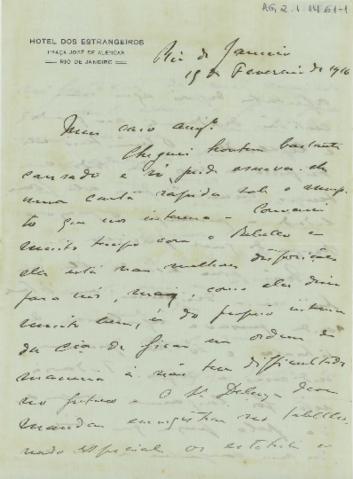 AG 2.1.1461-1
HOTEL DOS ESTRANGEIROS
PRAÇA JOSÉ DE ALENCAR
RIO DE JANEIRO
Rio de Janeiro
15 de Fevereiro de 1916
Meu caro amº.
Cheguei hontem bastante
cansado e só pude escrever-lhe
uma carta rapida sob o assump-
to que nos interessa - Conversei
muito tempo com o
elle está nas melhores disposições
para nós, mas, como elle disse
muito bem, é do proprio interesse
da Cia. de ficar na ordem de
maneira á não ter difficuldades
no futuro e o Sr. deve
mandar registrar no tabellio-
nado especial os estatutos e